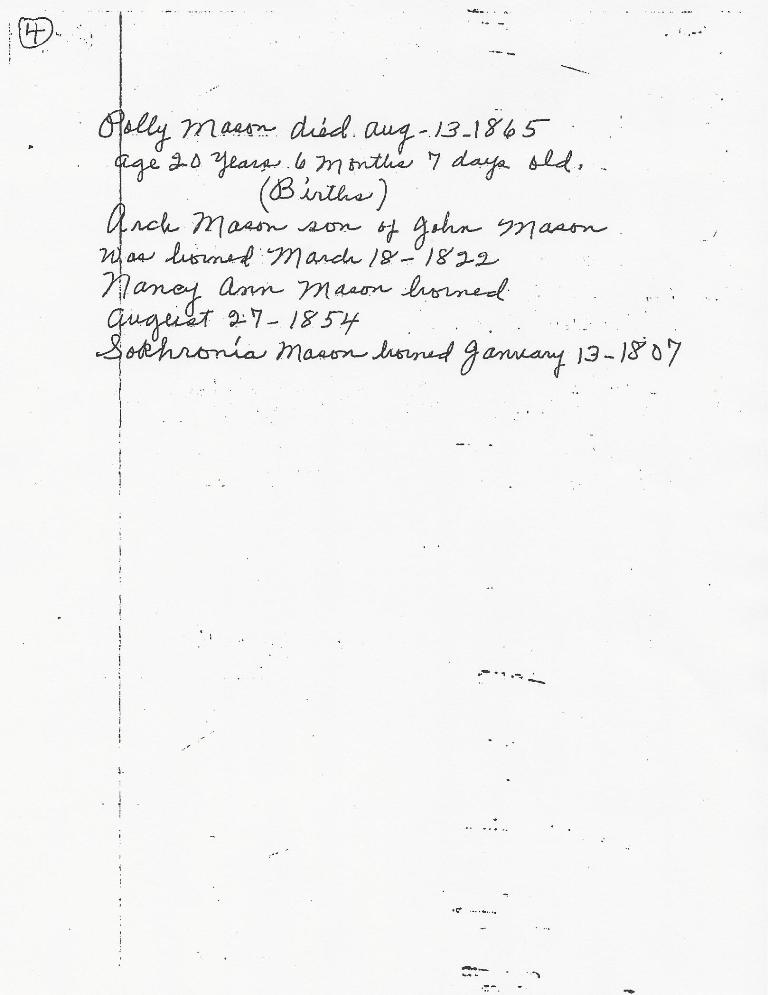 4
Polly Mason died. Aug-13-1865
age 20 years 6 Months 7 days old.
(Births)
Arch Mason son of John Mason
was borned March 18-1822
Nancy Ann Mason borned
August 27-1854
Sokhronia Mason borned January 13-1807